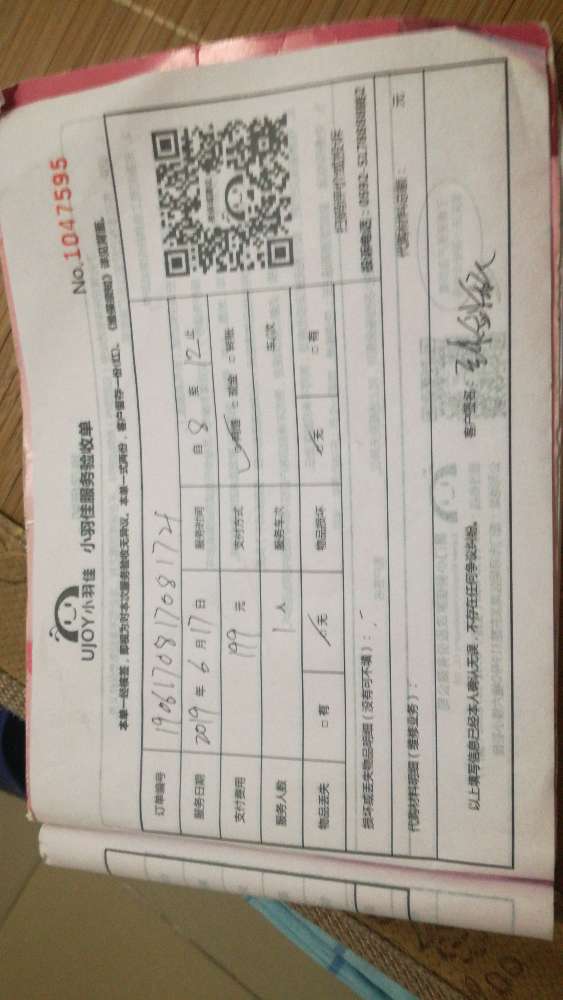 No.10447595
UJOY小羽佳 小羽佳服务验收单
本单一经核签，即视为对本次服务验收无异议。本单一式两份，客户留存一份(红)。《服务须知》详见背面。
订单编号 190617081708172
服务日期 2019 年 6 月 17 日 服务时间 自 8 至 12 止
支付费用 199 元 支付方式 现金 转账
服务人数 1 人 服务车次 车/次
物品丢失 有 无 物品损坏 无 有
扫码评价或投诉
损坏或丢失物品明细（没有可不填）：
投诉电话：0592-5178888转2
代购材料明细（维修业务）： 代购材料总额： 元
以上填写信息已经本人确认无误，不存在任何争议纠纷。 客户签名：